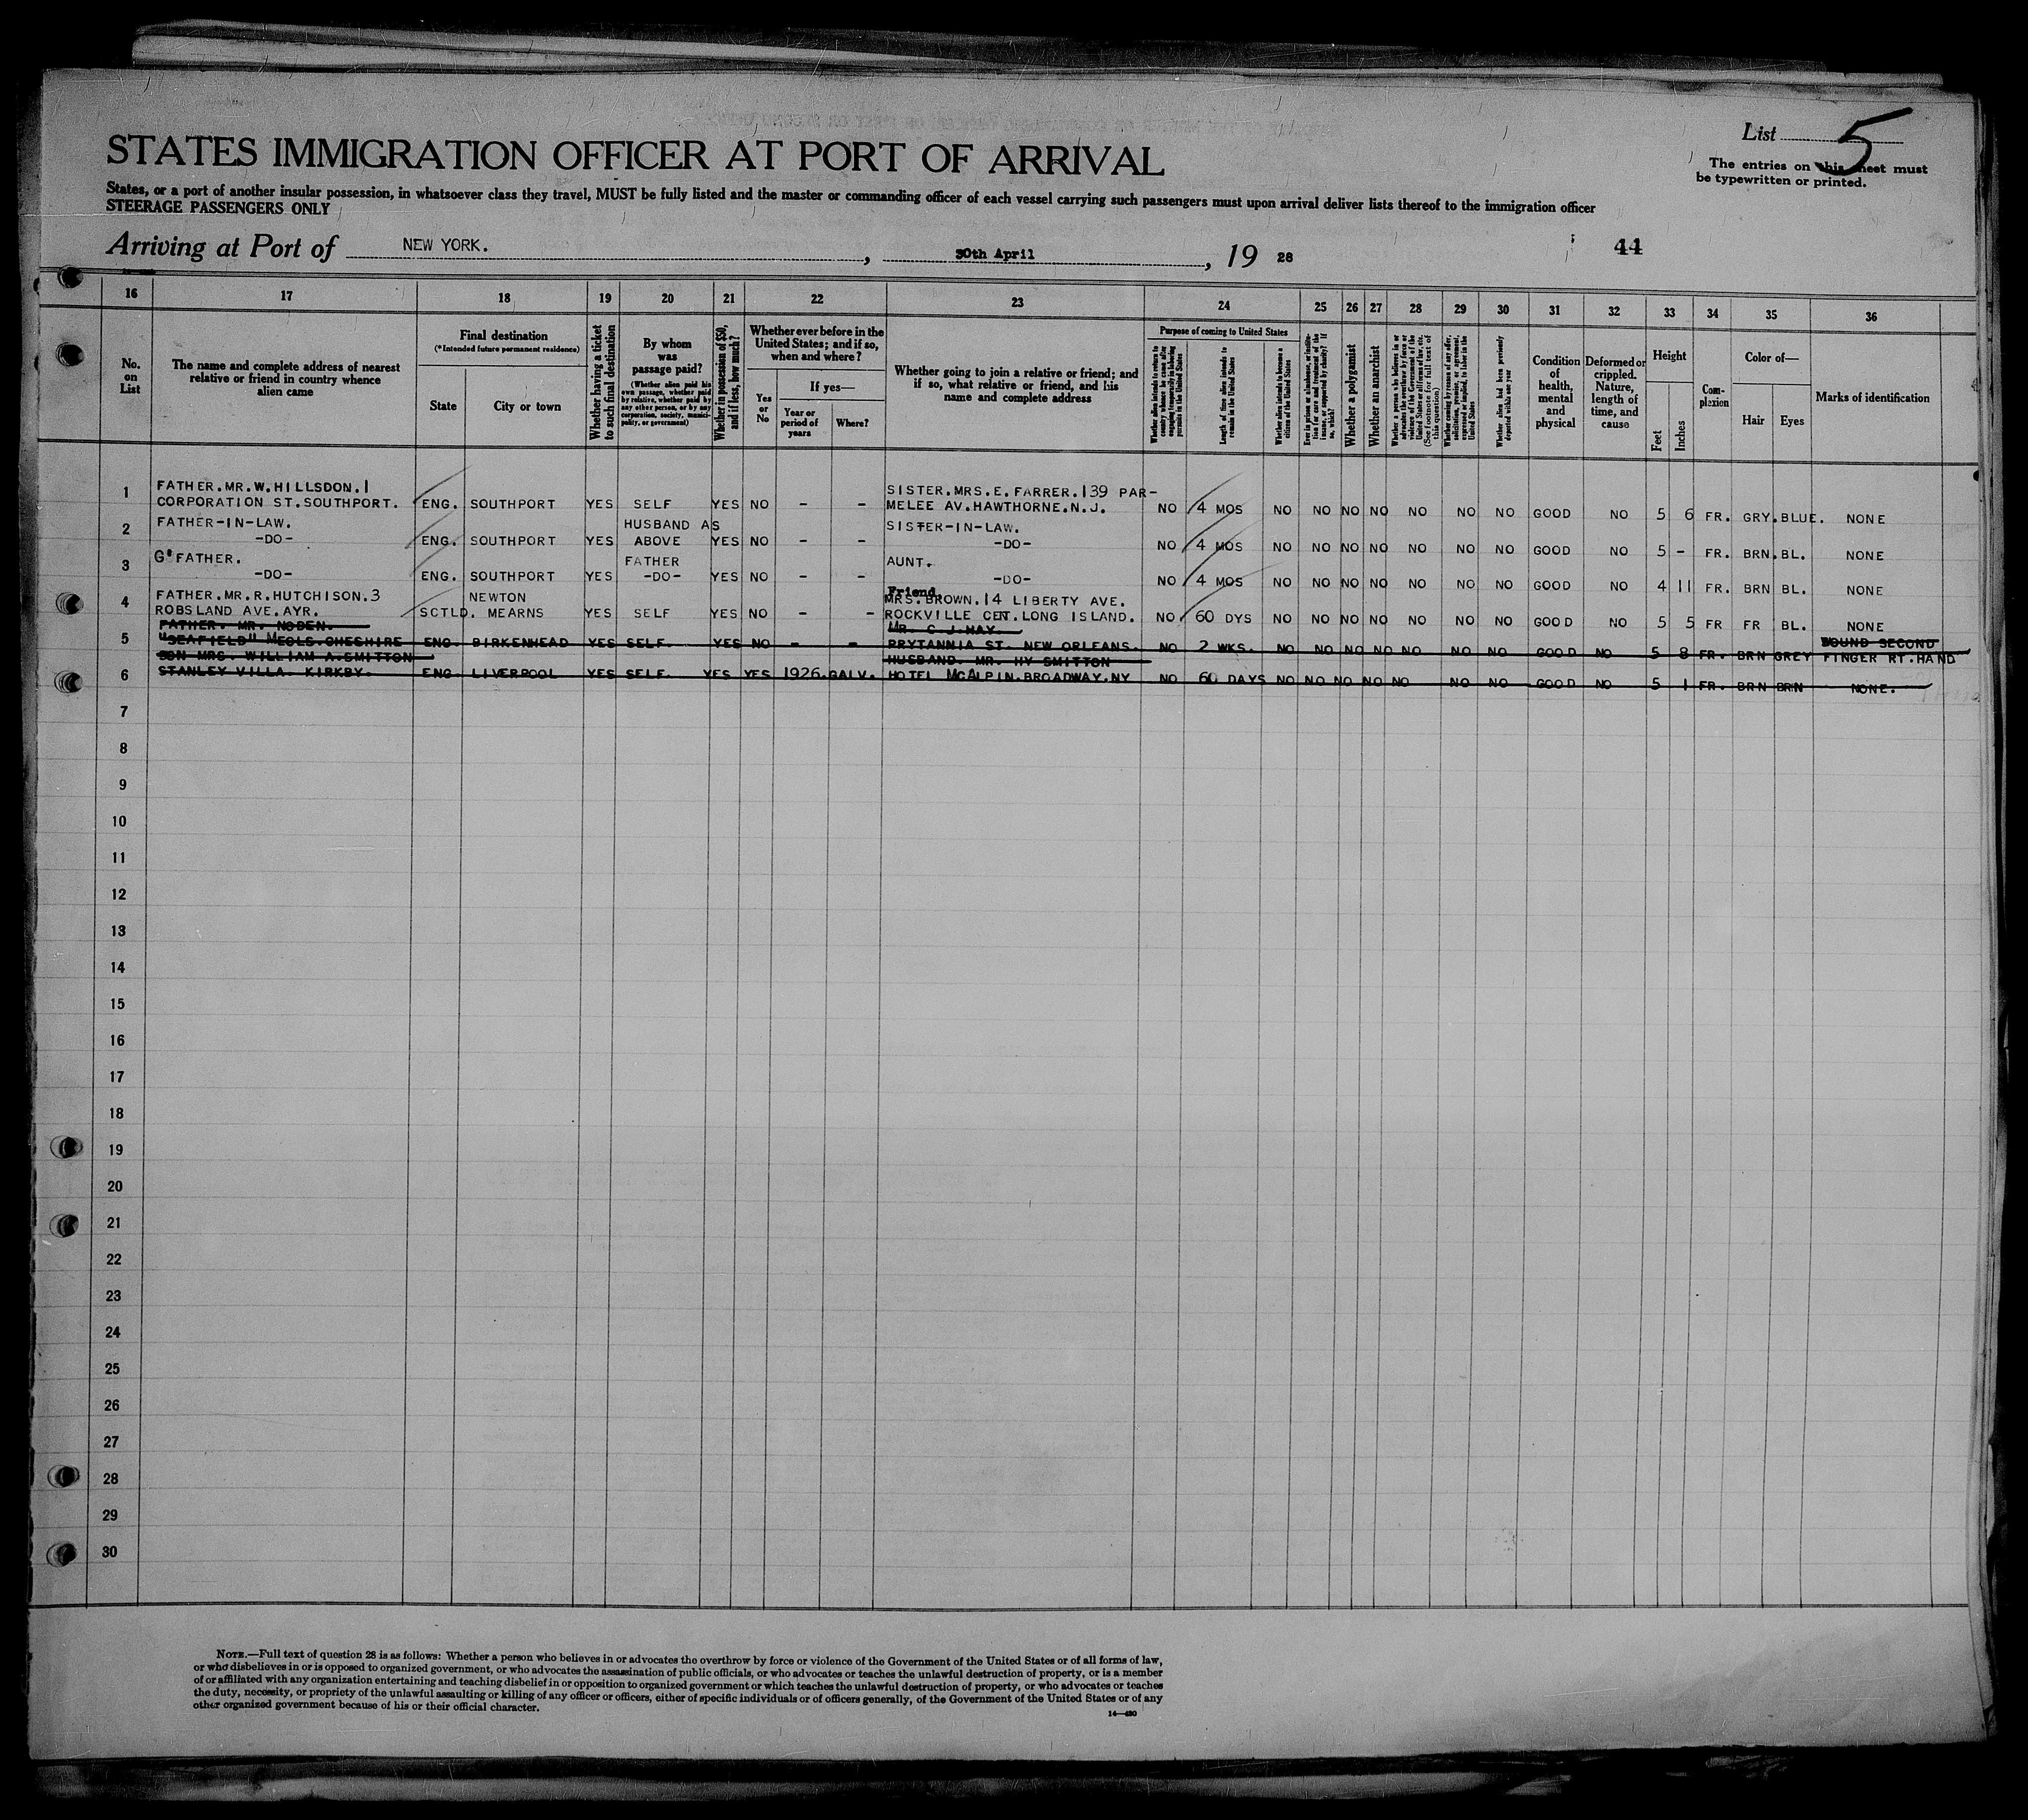 List 5
The entries on this sheet must
be typewritten or printed.
STATES IMMIGRATION OFFICER AT PORT OF ARRIVAL
States, or a port of another insular possession, in whatsoever class they travel, MUST be fully listed and the master or commanding officer of each vessel carrying such passengers must upon arrival deliver lists thereof to the immigration officer
STEERAGE PASSENGERS ONLY
Arriving at Port of NEW YORK. , 30th April , 19 28
44
16 17 18 19 20 21 22 23 24 25 26 27 28 29 30 31 32 33 34 35 36
No. on List
The name and complete address of nearest relative or friend in country whence alien came
Final destination
(*Intended future permanent residence)
State
City or town
Whether having a ticket to such final destination
By whom was passage paid?
(Whether alien paid his own passage, whether paid by relative, whether paid by any other person, or by any corporation, society, municipality, or government)
Whether in possession of $50, and if less, how much?
Whether ever before in the United States; and if so, when and where?
Yes or No
If yes—
Year or period of years
Where?
Whether going to join a relative or friend; and if so, what relative or friend, and his name and complete address
Purpose of coming to United States
Whether alien intends to return to country whence he came after engaging temporarily in laboring pursuits in the United States
Length of time alien intends to remain in the United States
Whether alien intends to become a citizen of the United States
Whether a polygamist
Whether an anarchist
(See footnote for full text of this question)
Whether alien had been previously deported within one year
Condition of health, mental and physical
Deformed or crippled. Nature, length of time, and cause
Height
Feet
Inches
Complexion
Color of—
Hair
Eyes
Marks of identification
1 FATHER.MR.W.HILLSDON.1 CORPORATION ST.SOUTHPORT. ENG. SOUTHPORT YES SELF YES NO - - SISTER.MRS.E.FARRER.139 PAR-MELEE AV.HAWTHORNE.N.J. NO 4 MOS NO NO NO NO NO NO NO GOOD NO 5 6 FR. GRY.BLUE. NONE
2 FATHER-IN-LAW. -DO- ENG. SOUTHPORT YES HUSBAND AS ABOVE YES NO - - SISTER-IN-LAW. -DO- NO 4 MOS NO NO NO NO NO NO NO GOOD NO 5 - FR. BRN.BL. NONE
3 G'FATHER. -DO- ENG. SOUTHPORT YES FATHER -DO- YES NO - - AUNT. -DO- NO 4 MOS NO NO NO NO NO NO NO GOOD NO 4 11 FR. BRN BL. NONE
4 FATHER.MR.R.HUTCHISON.3 ROBSLAND AVE.AYR. SCTLD. NEWTON MEARNS YES SELF YES NO - - Friend. MRS.BROWN.14 LIBERTY AVE. ROCKVILLE CEN.LONG ISLAND. NO 60 DYS NO NO NO NO NO NO NO GOOD NO 5 5 FR FR BL. NONE
5 FATHER. MR. NODEN. "SEAFIELD" MEOLS.CHESHIRE ENG. BIRKENHEAD YES SELF. YES NO - - MR. C.J.MAY. PRYTANNIA ST. NEW ORLEANS. NO 2 WKS. NO NO NO NO NO NO NO GOOD NO 5 8 FR. BRN GREY WOUND SECOND FINGER RT.HAND
6 SON MRS. WILLIAM A.SMITTON STANLEY VILLA. KIRKBY. ENG. LIVERPOOL YES SELF. YES YES 1926.GALV. HUSBAND. MR. HY SMITTON HOTEL McALPIN.BROADWAY.NY NO 60 DAYS NO NO NO NO NO NO NO GOOD NO 5 1 FR. BRN BRN NONE.
7
8
9
10
11
12
13
14
15
16
17
18
19
20
21
22
23
24
25
26
27
28
29
30
NOTE.—Full text of question 28 is as follows: Whether a person who believes in or advocates the overthrow by force or violence of the Government of the United States or of all forms of law,
or who disbelieves in or is opposed to organized government, or who advocates the assassination of public officials, or who advocates or teaches the unlawful destruction of property, or is a member
of or affiliated with any organization entertaining and teaching disbelief in or opposition to organized government or which teaches the unlawful destruction of property, or who advocates or teaches
the duty, necessity, or propriety of the unlawful assaulting or killing of any officer or officers, either of specific individuals or of officers generally, of the Government of the United States or of any
other organized government because of his or their official character.
14—430